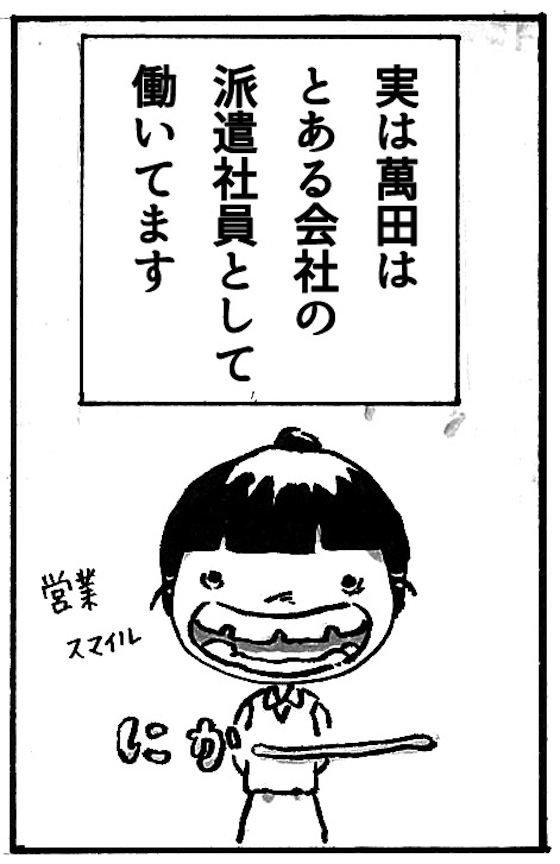 実は萬田は
とある会社の
派遣社員として
働いてます
営業
スマイル
にかー